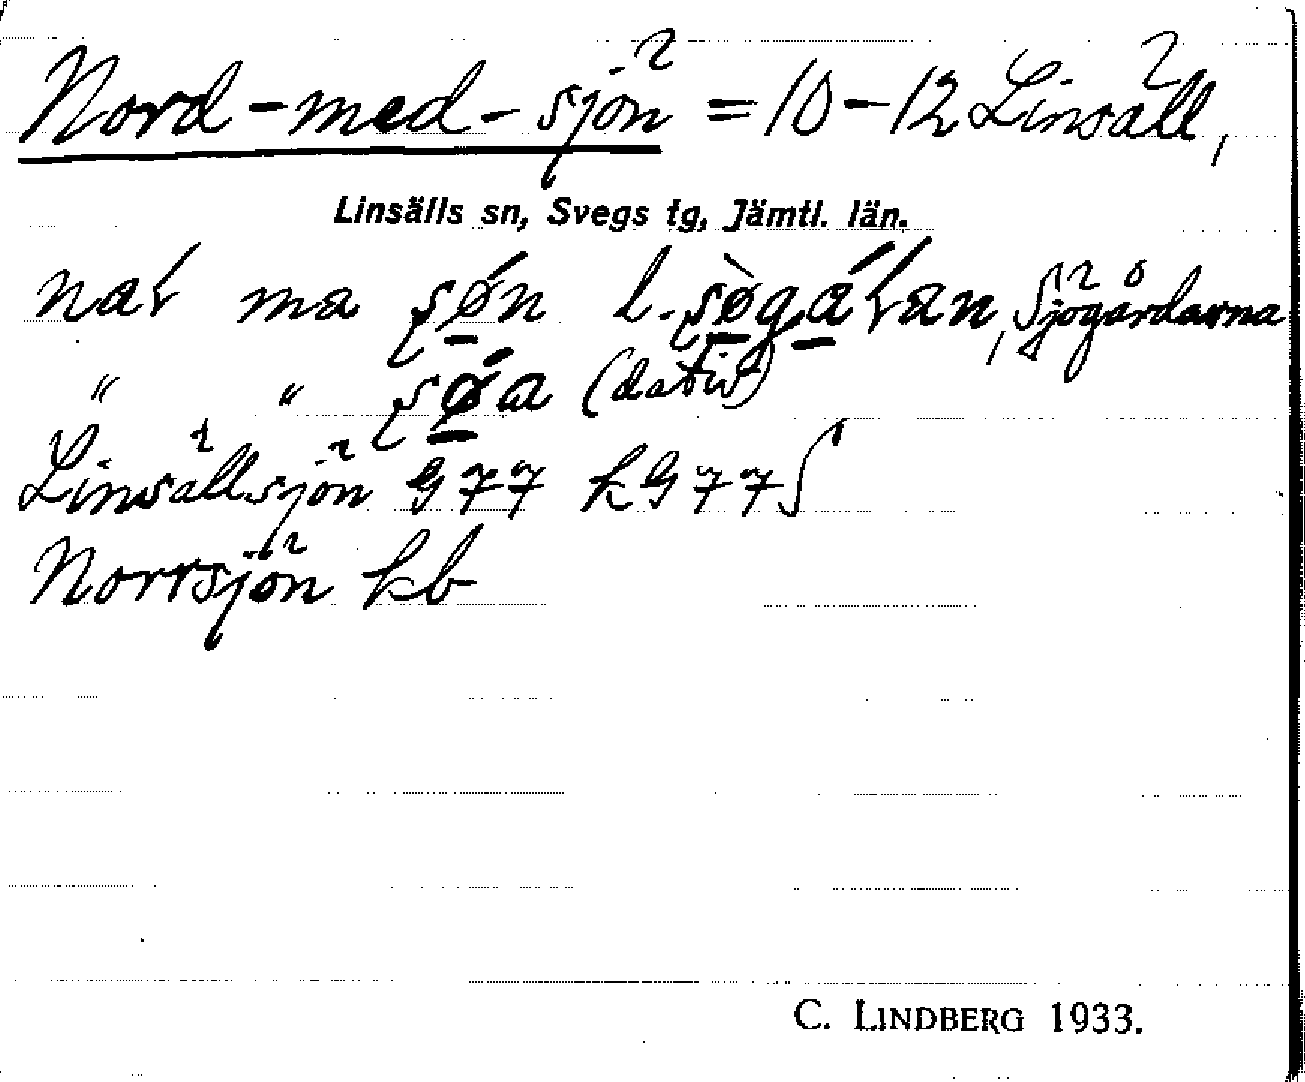 Nord-med-sjön = 10-12 Linsäll,
Linsälls sn, Svegs tg, Jämtl. län.
ma l. Sjögårdarna
" " (dativ)
Linsällsjön G77 kG77
Norrsjön kb
C. LINDBERG 1933.